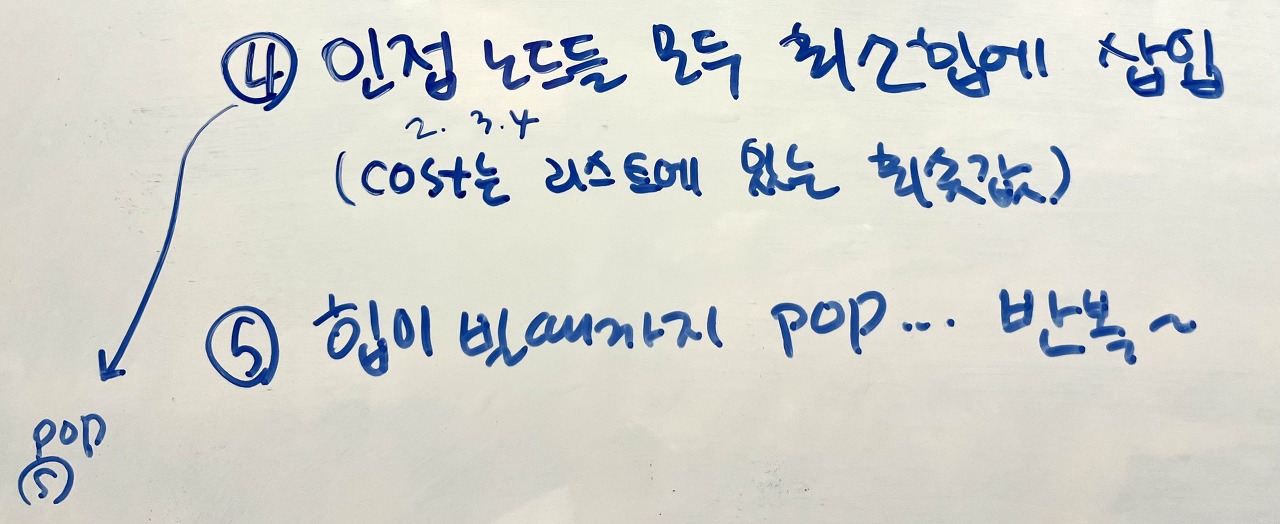 ④ 인접 노드들 모두 최소힙에 삽입
2. 3. 4
(cost는 리스트에 있는 최솟값)
⑤ 힙이 빌때까지 pop... 반복~
pop
⑤